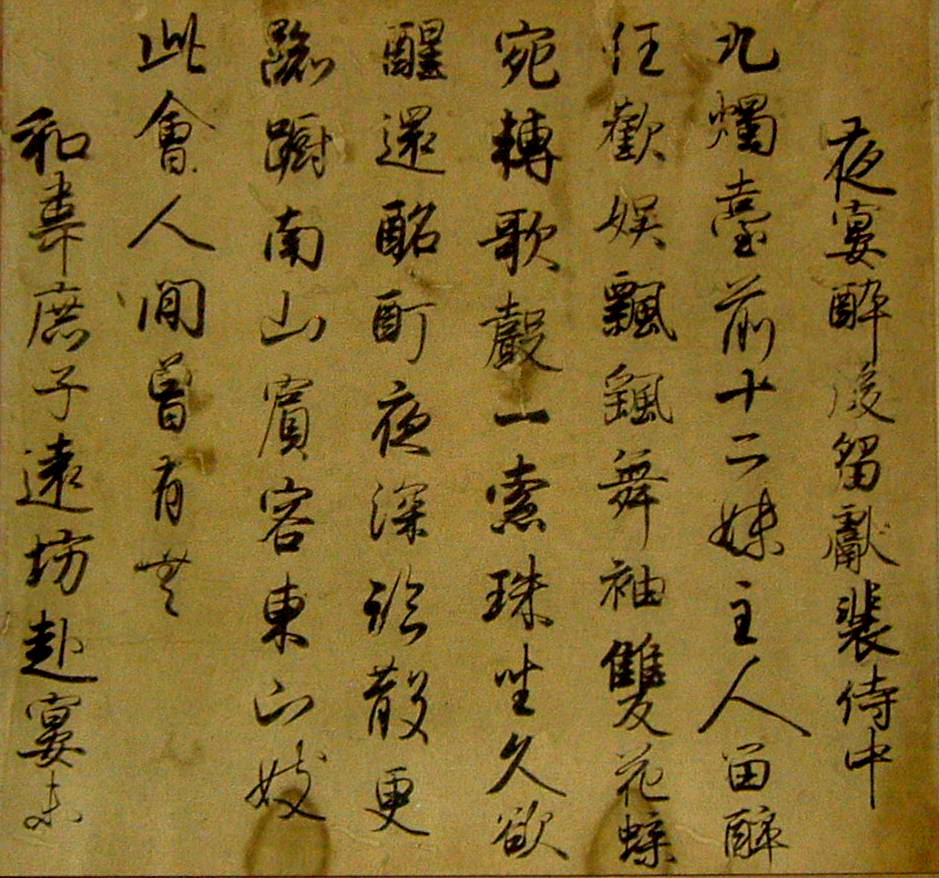 夜宴醉後留獻裴侍中
九燭臺前十二妹主人留醉
任歡娛飄颻舞袖雙花蝶
宛轉歌聲一索珠坐久欲
醒還酩酊夜深初散更
踟躕南山賓客東山妓
此會人間曾有無
和韋庶子遠坊赴宴未